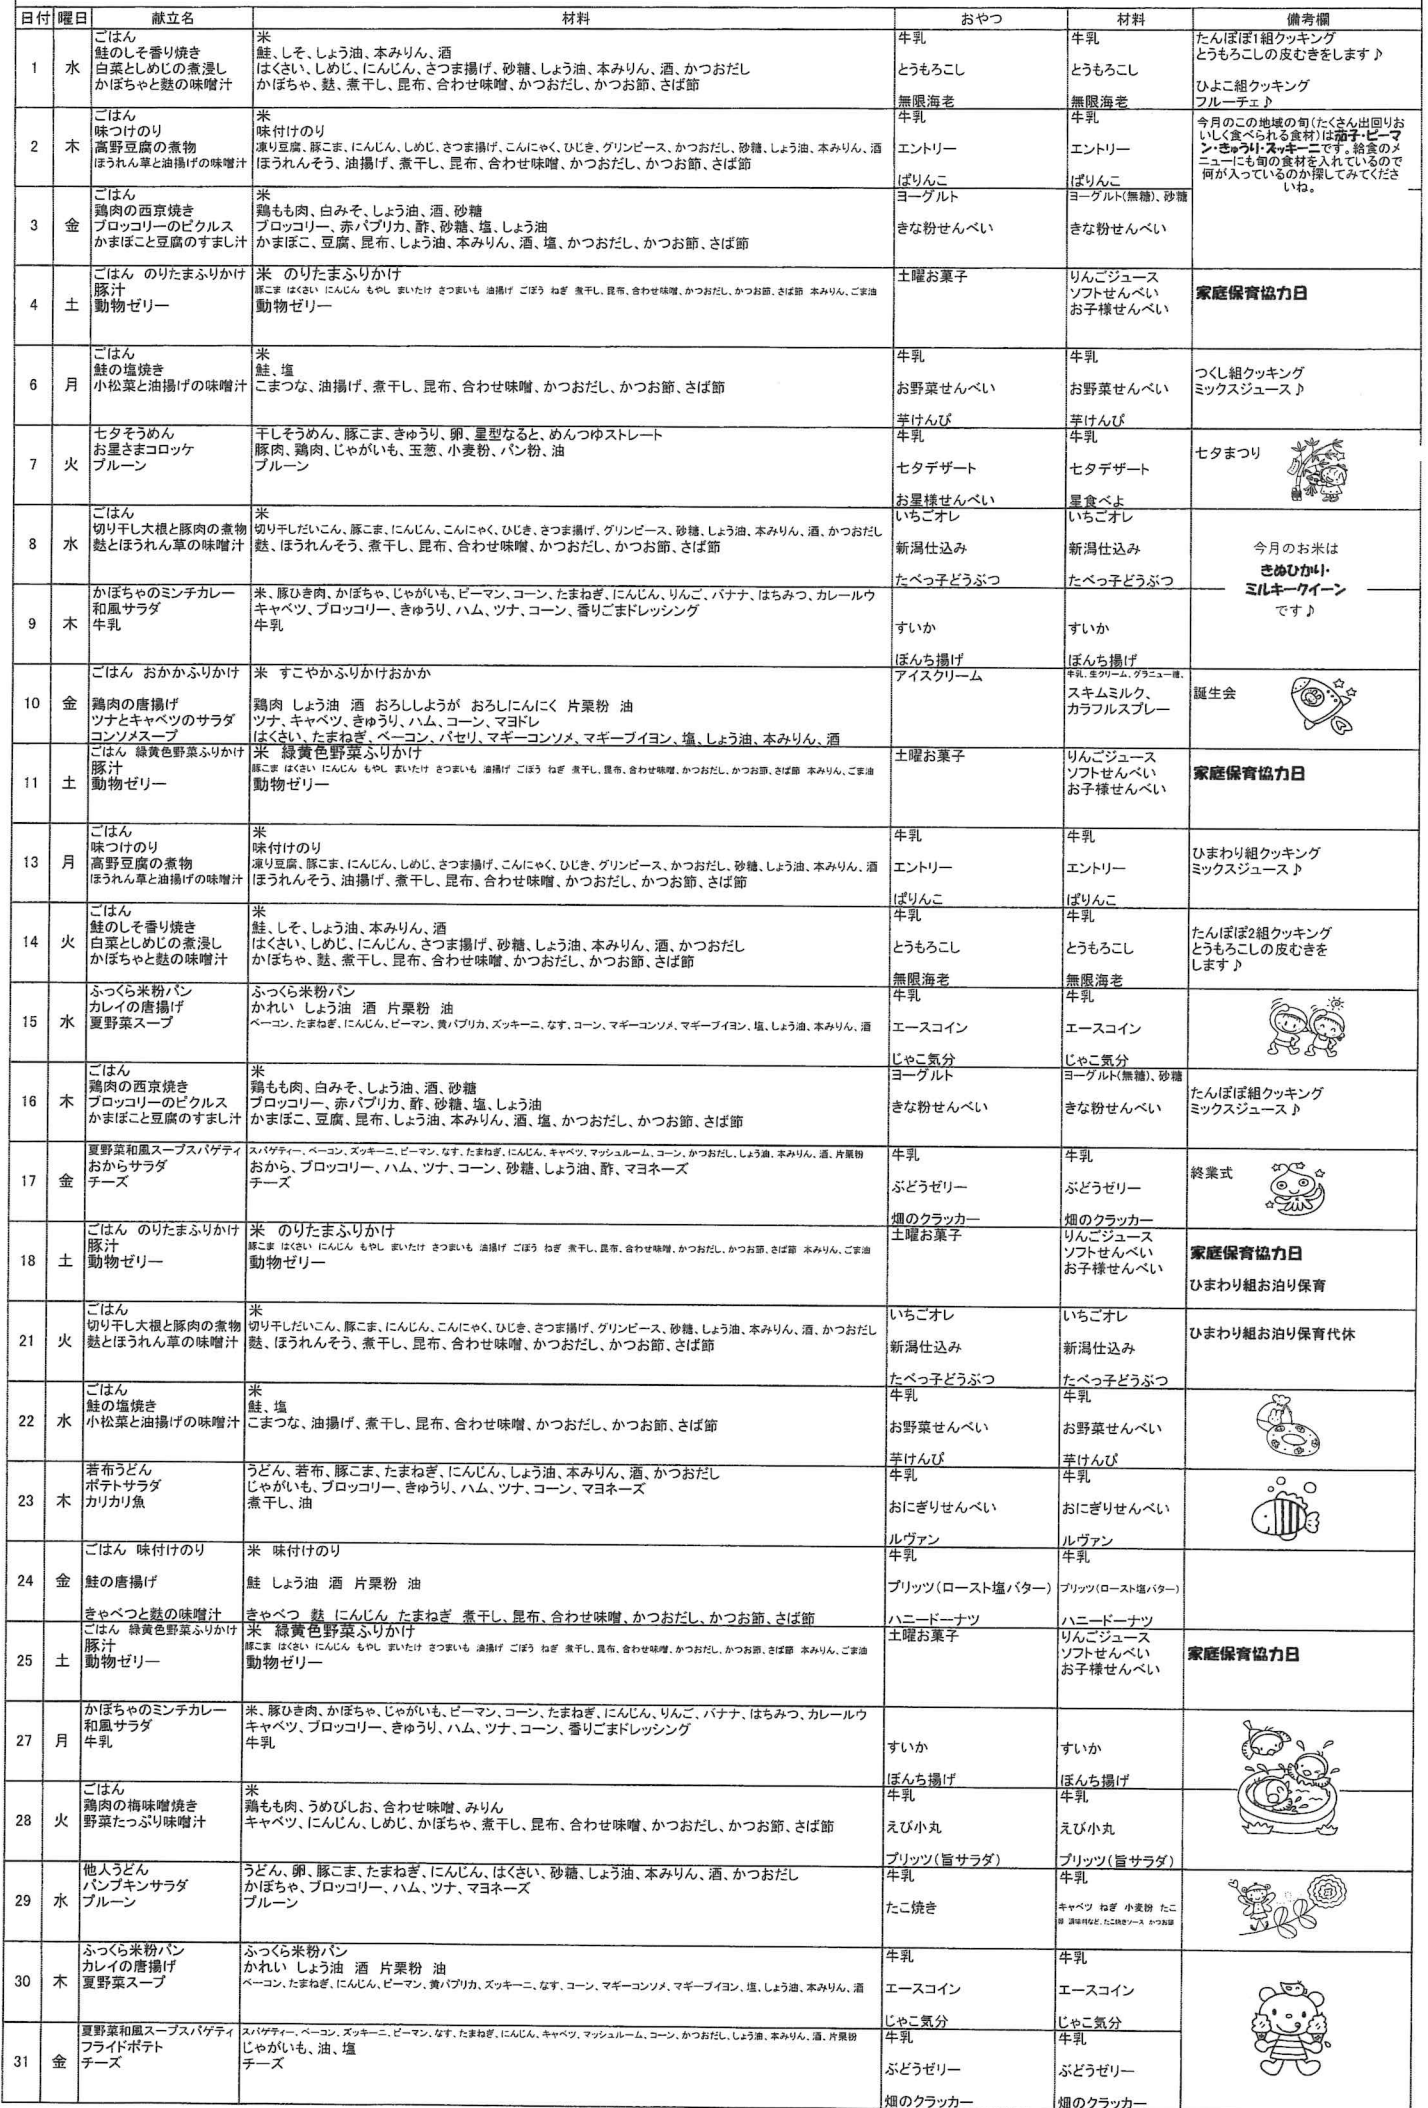 日付 曜日 献立名 材料 おやつ 材料 備考欄
1 水
ごはん
鮭のしそ香り焼き
白菜としめじの煮浸し
かぼちゃと麩の味噌汁
米
鮭、しそ、しょう油、本みりん、酒
はくさい、しめじ、にんじん、さつま揚げ、砂糖、しょう油、本みりん、酒、かつおだし
かぼちゃ、麩、煮干し、昆布、合わせ味噌、かつおだし、かつお節、さば節
牛乳
とうもろこし
無限海老
牛乳
とうもろこし
無限海老
たんぽぽ1組クッキング
とうもろこしの皮むきをします♪
ひよこ組クッキング
フルーチェ♪
2 木
ごはん
味つけのり
高野豆腐の煮物
ほうれん草と油揚げの味噌汁
米
味付けのり
凍り豆腐、豚こま、にんじん、しめじ、さつま揚げ、こんにゃく、ひじき、グリンピース、かつおだし、砂糖、しょう油、本みりん、酒
ほうれんそう、油揚げ、煮干し、昆布、合わせ味噌、かつおだし、かつお節、さば節
牛乳
エントリー
ぱりんこ
牛乳
エントリー
ぱりんこ
今月のこの地域の旬(たくさん出回りお
いしく食べられる食材)は茄子・ピーマ
ン・きゅうり・ズッキーニです。給食のメ
ニューにも旬の食材を入れているので
何が入っているのか探してみてくださ
いね。
3 金
ごはん
鶏肉の西京焼き
ブロッコリーのピクルス
かまぼこと豆腐のすまし汁
米
鶏もも肉、白みそ、しょう油、酒、砂糖
ブロッコリー、赤パプリカ、酢、砂糖、塩、しょう油
かまぼこ、豆腐、昆布、しょう油、本みりん、酒、塩、かつおだし、かつお節、さば節
ヨーグルト
きな粉せんべい
ヨーグルト(無糖)、砂糖
きな粉せんべい
4 土
ごはん のりたまふりかけ
豚汁
動物ゼリー
米 のりたまふりかけ
豚こま はくさい にんじん もやし まいたけ さつまいも 油揚げ ごぼう ねぎ 煮干し、昆布、合わせ味噌、かつおだし、かつお節、さば節 本みりん、ごま油
動物ゼリー
土曜お菓子
りんごジュース
ソフトせんべい
お子様せんべい
家庭保育協力日
6 月
ごはん
鮭の塩焼き
小松菜と油揚げの味噌汁
米
鮭、塩
こまつな、油揚げ、煮干し、昆布、合わせ味噌、かつおだし、かつお節、さば節
牛乳
お野菜せんべい
芋けんぴ
牛乳
お野菜せんべい
芋けんぴ
つくし組クッキング
ミックスジュース♪
7 火
七夕そうめん
お星さまコロッケ
プルーン
干しそうめん、豚こま、きゅうり、卵、星型なると、めんつゆストレート
豚肉、鶏肉、じゃがいも、玉葱、小麦粉、パン粉、油
プルーン
牛乳
七夕デザート
お星様せんべい
牛乳
七夕デザート
星食べよ
七夕まつり
8 水
ごはん
切り干し大根と豚肉の煮物
麩とほうれん草の味噌汁
米
切り干しだいこん、豚こま、にんじん、こんにゃく、ひじき、さつま揚げ、グリンピース、砂糖、しょう油、本みりん、酒、かつおだし
麩、ほうれんそう、煮干し、昆布、合わせ味噌、かつおだし、かつお節、さば節
いちごオレ
新潟仕込み
たべっ子どうぶつ
いちごオレ
新潟仕込み
たべっ子どうぶつ
今月のお米は
きぬひかり・
ミルキークイーン
です♪
9 木
かぼちゃのミンチカレー
和風サラダ
牛乳
米、豚ひき肉、かぼちゃ、じゃがいも、ピーマン、コーン、たまねぎ、にんじん、りんご、バナナ、はちみつ、カレールウ
キャベツ、ブロッコリー、きゅうり、ハム、ツナ、コーン、香りごまドレッシング
牛乳
すいか
ぼんち揚げ
すいか
ぼんち揚げ
10 金
ごはん おかかふりかけ
鶏肉の唐揚げ
ツナとキャベツのサラダ
コンソメスープ
米 すこやかふりかけおかか
鶏肉 しょう油 酒 おろししょうが おろしにんにく 片栗粉 油
ツナ、キャベツ、きゅうり、ハム、コーン、マヨドレ
はくさい、たまねぎ、ベーコン、パセリ、マギーコンソメ、マギーブイヨン、塩、しょう油、本みりん、酒
アイスクリーム
牛乳、生クリーム、グラニュー糖、
スキムミルク、
カラフルスプレー
誕生会
11 土
ごはん 緑黄色野菜ふりかけ
豚汁
動物ゼリー
米 緑黄色野菜ふりかけ
豚こま はくさい にんじん もやし まいたけ さつまいも 油揚げ ごぼう ねぎ 煮干し、昆布、合わせ味噌、かつおだし、かつお節、さば節 本みりん、ごま油
動物ゼリー
土曜お菓子
りんごジュース
ソフトせんべい
お子様せんべい
家庭保育協力日
13 月
ごはん
味つけのり
高野豆腐の煮物
ほうれん草と油揚げの味噌汁
米
味付けのり
凍り豆腐、豚こま、にんじん、しめじ、さつま揚げ、こんにゃく、ひじき、グリンピース、かつおだし、砂糖、しょう油、本みりん、酒
ほうれんそう、油揚げ、煮干し、昆布、合わせ味噌、かつおだし、かつお節、さば節
牛乳
エントリー
ぱりんこ
牛乳
エントリー
ぱりんこ
ひまわり組クッキング
ミックスジュース♪
14 火
ごはん
鮭のしそ香り焼き
白菜としめじの煮浸し
かぼちゃと麩の味噌汁
米
鮭、しそ、しょう油、本みりん、酒
はくさい、しめじ、にんじん、さつま揚げ、砂糖、しょう油、本みりん、酒、かつおだし
かぼちゃ、麩、煮干し、昆布、合わせ味噌、かつおだし、かつお節、さば節
牛乳
とうもろこし
無限海老
牛乳
とうもろこし
無限海老
たんぽぽ2組クッキング
とうもろこしの皮むきを
します♪
15 水
ふっくら米粉パン
カレイの唐揚げ
夏野菜スープ
ふっくら米粉パン
かれい しょう油 酒 片栗粉 油
ベーコン、たまねぎ、にんじん、ピーマン、黄パプリカ、ズッキーニ、なす、コーン、マギーコンソメ、マギーブイヨン、塩、しょう油、本みりん、酒
牛乳
エースコイン
じゃこ気分
牛乳
エースコイン
じゃこ気分
16 木
ごはん
鶏肉の西京焼き
ブロッコリーのピクルス
かまぼこと豆腐のすまし汁
米
鶏もも肉、白みそ、しょう油、酒、砂糖
ブロッコリー、赤パプリカ、酢、砂糖、塩、しょう油
かまぼこ、豆腐、昆布、しょう油、本みりん、酒、塩、かつおだし、かつお節、さば節
ヨーグルト
きな粉せんべい
ヨーグルト(無糖)、砂糖
きな粉せんべい
たんぽぽ組クッキング
ミックスジュース♪
17 金
夏野菜和風スープスパゲティ
おからサラダ
チーズ
スパゲティー、ベーコン、ズッキーニ、ピーマン、なす、たまねぎ、にんじん、キャベツ、マッシュルーム、コーン、かつおだし、しょう油、本みりん、酒、片栗粉
おから、ブロッコリー、ハム、ツナ、コーン、砂糖、しょう油、酢、マヨネーズ
チーズ
牛乳
ぶどうゼリー
畑のクラッカー
牛乳
ぶどうゼリー
畑のクラッカー
終業式
18 土
ごはん のりたまふりかけ
豚汁
動物ゼリー
米 のりたまふりかけ
豚こま はくさい にんじん もやし まいたけ さつまいも 油揚げ ごぼう ねぎ 煮干し、昆布、合わせ味噌、かつおだし、かつお節、さば節 本みりん、ごま油
動物ゼリー
土曜お菓子
りんごジュース
ソフトせんべい
お子様せんべい
家庭保育協力日
ひまわり組お泊り保育
21 火
ごはん
切り干し大根と豚肉の煮物
麩とほうれん草の味噌汁
米
切り干しだいこん、豚こま、にんじん、こんにゃく、ひじき、さつま揚げ、グリンピース、砂糖、しょう油、本みりん、酒、かつおだし
麩、ほうれんそう、煮干し、昆布、合わせ味噌、かつおだし、かつお節、さば節
いちごオレ
新潟仕込み
たべっ子どうぶつ
いちごオレ
新潟仕込み
たべっ子どうぶつ
ひまわり組お泊り保育代休
22 水
ごはん
鮭の塩焼き
小松菜と油揚げの味噌汁
米
鮭、塩
こまつな、油揚げ、煮干し、昆布、合わせ味噌、かつおだし、かつお節、さば節
牛乳
お野菜せんべい
芋けんぴ
牛乳
お野菜せんべい
芋けんぴ
23 木
若布うどん
ポテトサラダ
カリカリ魚
うどん、若布、豚こま、たまねぎ、にんじん、しょう油、本みりん、酒、かつおだし
じゃがいも、ブロッコリー、きゅうり、ハム、ツナ、コーン、マヨネーズ
煮干し、油
牛乳
おにぎりせんべい
ルヴァン
牛乳
おにぎりせんべい
ルヴァン
24 金
ごはん 味付けのり
鮭の唐揚げ
きゃべつと麩の味噌汁
米 味付けのり
鮭 しょう油 酒 片栗粉 油
きゃべつ 麩 にんじん たまねぎ 煮干し、昆布、合わせ味噌、かつおだし、かつお節、さば節
牛乳
プリッツ(ロースト塩バター)
ハニードーナツ
牛乳
プリッツ(ロースト塩バター)
ハニードーナツ
25 土
ごはん 緑黄色野菜ふりかけ
豚汁
動物ゼリー
米 緑黄色野菜ふりかけ
豚こま はくさい にんじん もやし まいたけ さつまいも 油揚げ ごぼう ねぎ 煮干し、昆布、合わせ味噌、かつおだし、かつお節、さば節 本みりん、ごま油
動物ゼリー
土曜お菓子
りんごジュース
ソフトせんべい
お子様せんべい
家庭保育協力日
27 月
かぼちゃのミンチカレー
和風サラダ
牛乳
米、豚ひき肉、かぼちゃ、じゃがいも、ピーマン、コーン、たまねぎ、にんじん、りんご、バナナ、はちみつ、カレールウ
キャベツ、ブロッコリー、きゅうり、ハム、ツナ、コーン、香りごまドレッシング
牛乳
すいか
ぼんち揚げ
すいか
ぼんち揚げ
28 火
ごはん
鶏肉の梅味噌焼き
野菜たっぷり味噌汁
米
鶏もも肉、うめびしお、合わせ味噌、みりん
キャベツ、にんじん、しめじ、かぼちゃ、煮干し、昆布、合わせ味噌、かつおだし、かつお節、さば節
牛乳
えび小丸
プリッツ(旨サラダ)
牛乳
えび小丸
プリッツ(旨サラダ)
29 水
他人うどん
パンプキンサラダ
プルーン
うどん、卵、豚こま、たまねぎ、にんじん、はくさい、砂糖、しょう油、本みりん、酒、かつおだし
かぼちゃ、ブロッコリー、ハム、ツナ、マヨネーズ
プルーン
牛乳
たこ焼き
牛乳
キャベツ ねぎ 小麦粉 たこ
卵 調味料など、たこ焼きソース かつお節
30 木
ふっくら米粉パン
カレイの唐揚げ
夏野菜スープ
ふっくら米粉パン
かれい しょう油 酒 片栗粉 油
ベーコン、たまねぎ、にんじん、ピーマン、黄パプリカ、ズッキーニ、なす、コーン、マギーコンソメ、マギーブイヨン、塩、しょう油、本みりん、酒
牛乳
エースコイン
じゃこ気分
牛乳
エースコイン
じゃこ気分
31 金
夏野菜和風スープスパゲティ
フライドポテト
チーズ
スパゲティー、ベーコン、ズッキーニ、ピーマン、なす、たまねぎ、にんじん、キャベツ、マッシュルーム、コーン、かつおだし、しょう油、本みりん、酒、片栗粉
じゃがいも、油、塩
チーズ
牛乳
ぶどうゼリー
畑のクラッカー
牛乳
ぶどうゼリー
畑のクラッカー